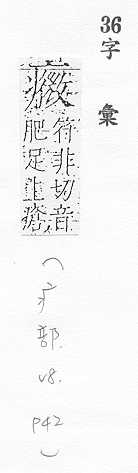 36字 彙
符非切音
肥足瘡
(疒部. v8. p42)